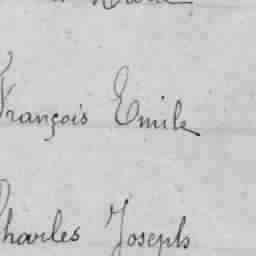 François Emile
Charles Joseph